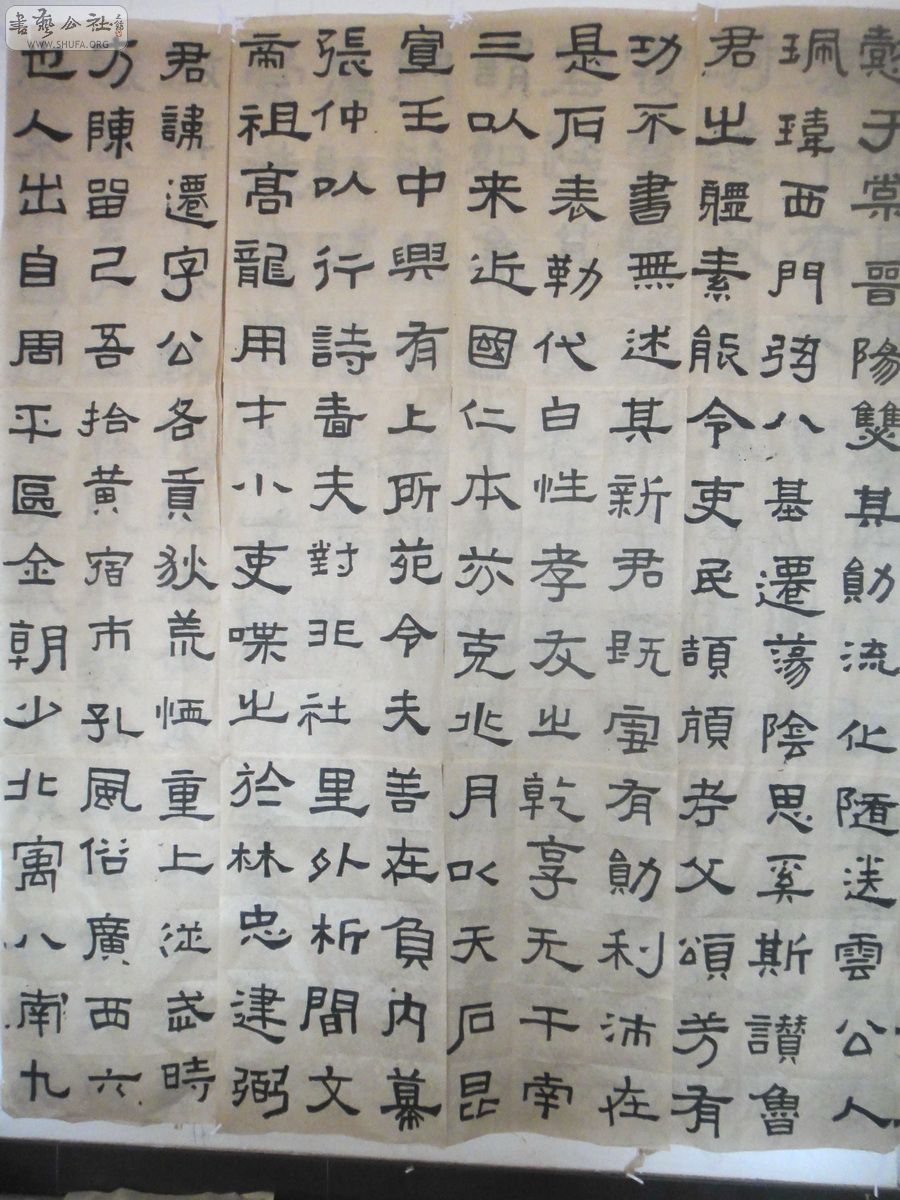 書藝公社
WWW.SHUFA.ORG
懿于棠晉陽雙其勛流化隨送雲公人
珮瑋西門弦八基遷蕩陰思奚斯讚魯
君之體素能令吏民頡頏孝父頌芳有
功不書無述其新君既宴有勛利沛在
是石表勒代白性孝友之乾享无干南
三以来近國仁本亦克兆月以天石昆
宣王中興有上所苑令夫善在負内幕
張仲以行詩嗇夫對非社里外析間文
帝祖高龍用才小吏喋之於林忠建弼
君諱遷字公各貢狄荒恓重上從武時
方陳留己吾拾黄宿市孔風俗廣西六
也人出自周平區金朝少北寓八南九